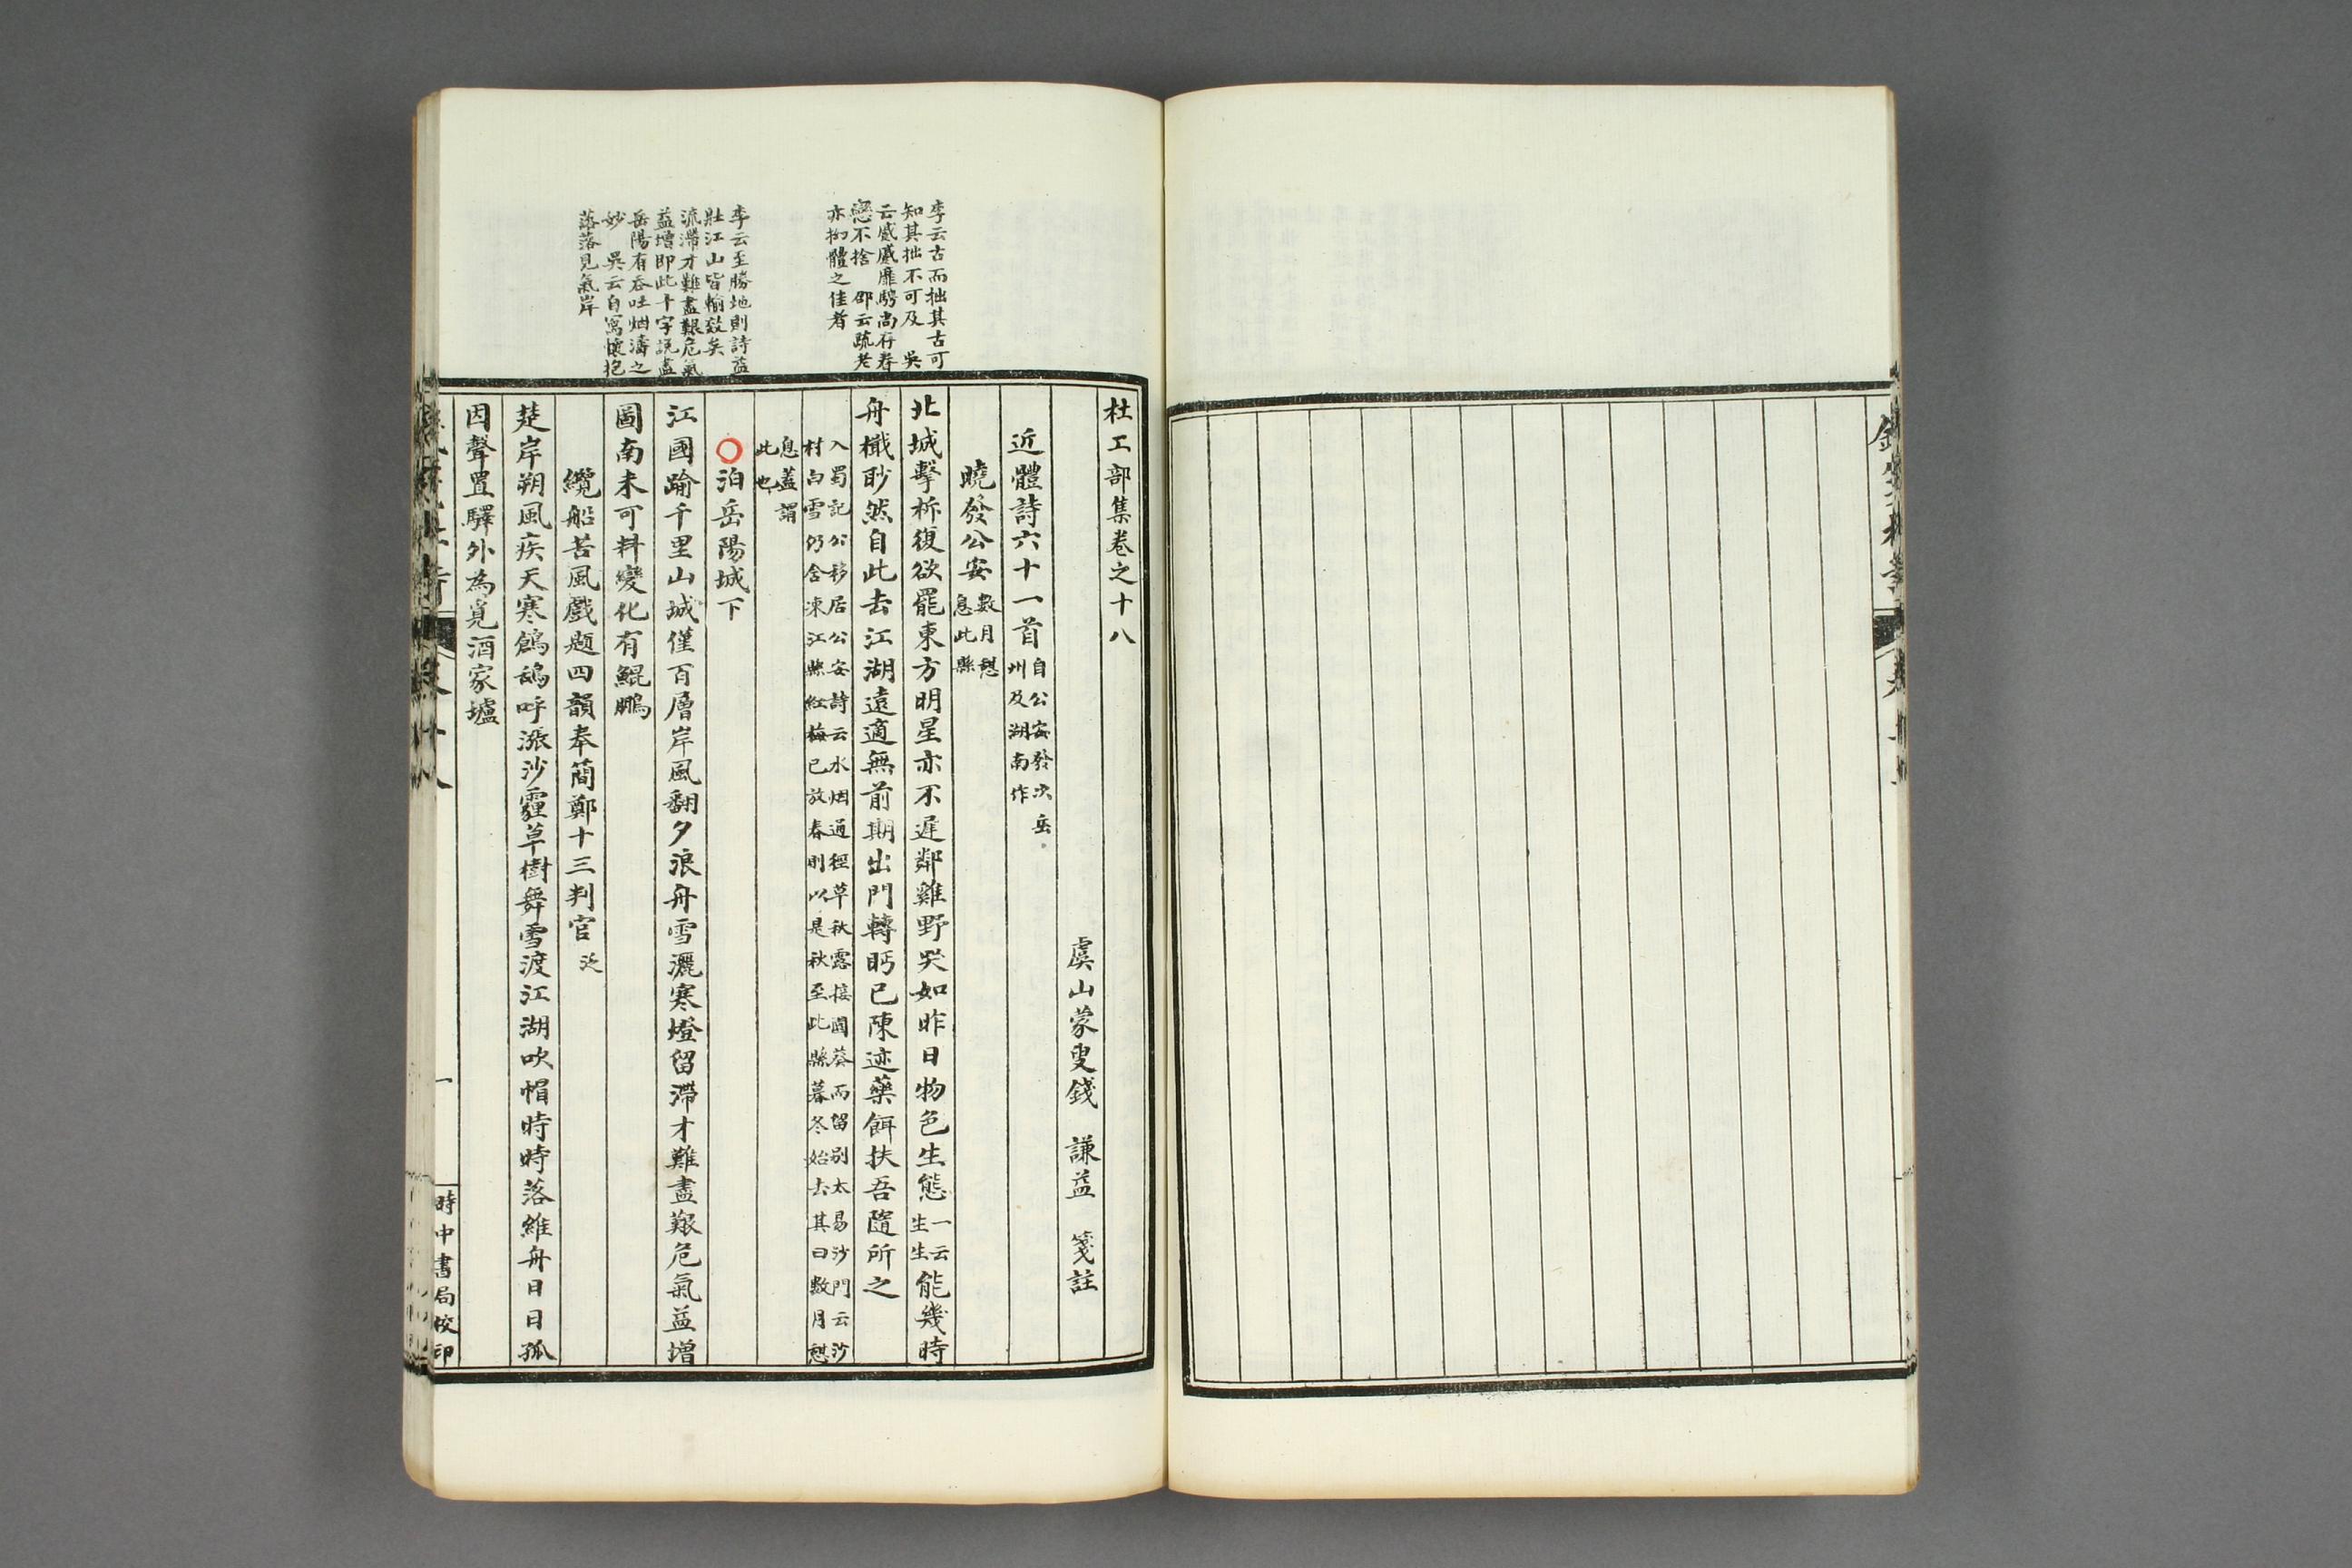 李云古而拙其古可
知其拙不可及　吳
云感感靡騁尚有眷
戀不捨　邵云疏老
亦拗體之佳者
李云至勝地則詩益
壯江山皆輸致矣
流滯才難盡艱危氣
益增即此十字説盡
岳陽有吞吐烟濤之
妙　吳云自寫懷抱
落落見氣岸
杜工部集卷之十八
虞山蒙叟錢　謙益　箋註
近體詩六十一首自公安發次岳
州及湖南作
曉發公安數月憩
息此縣
北城擊柝復欲罷東方明星亦不遲鄰雞野哭如昨日物色生態一云
生生能幾時
舟檝眇然自此去江湖遠適無前期出門轉眄已陳迹藥餌扶吾隨所之
入蜀記公移居公安詩云水烟通徑草秋露接園葵而留别太易沙門云沙
村白雪仍含凍江縣紅梅已放春則以是秋至此縣暮冬始去其曰數月憩
息蓋謂
此也
泊岳陽城下
江國踰千里山城僅百層岸風翻夕浪舟雪灑寒燈留滯才難盡艱危氣益增
圖南未可料變化有鯤鵬
纜船苦風戲題四韻奉簡鄭十三判官泛
楚岸朔風疾天寒鶬鴰呼漲沙霾草樹舞雪渡江湖吹帽時時落維舟日日孤
因聲置驛外為覓酒家壚
卷十八
一
時中書局校印